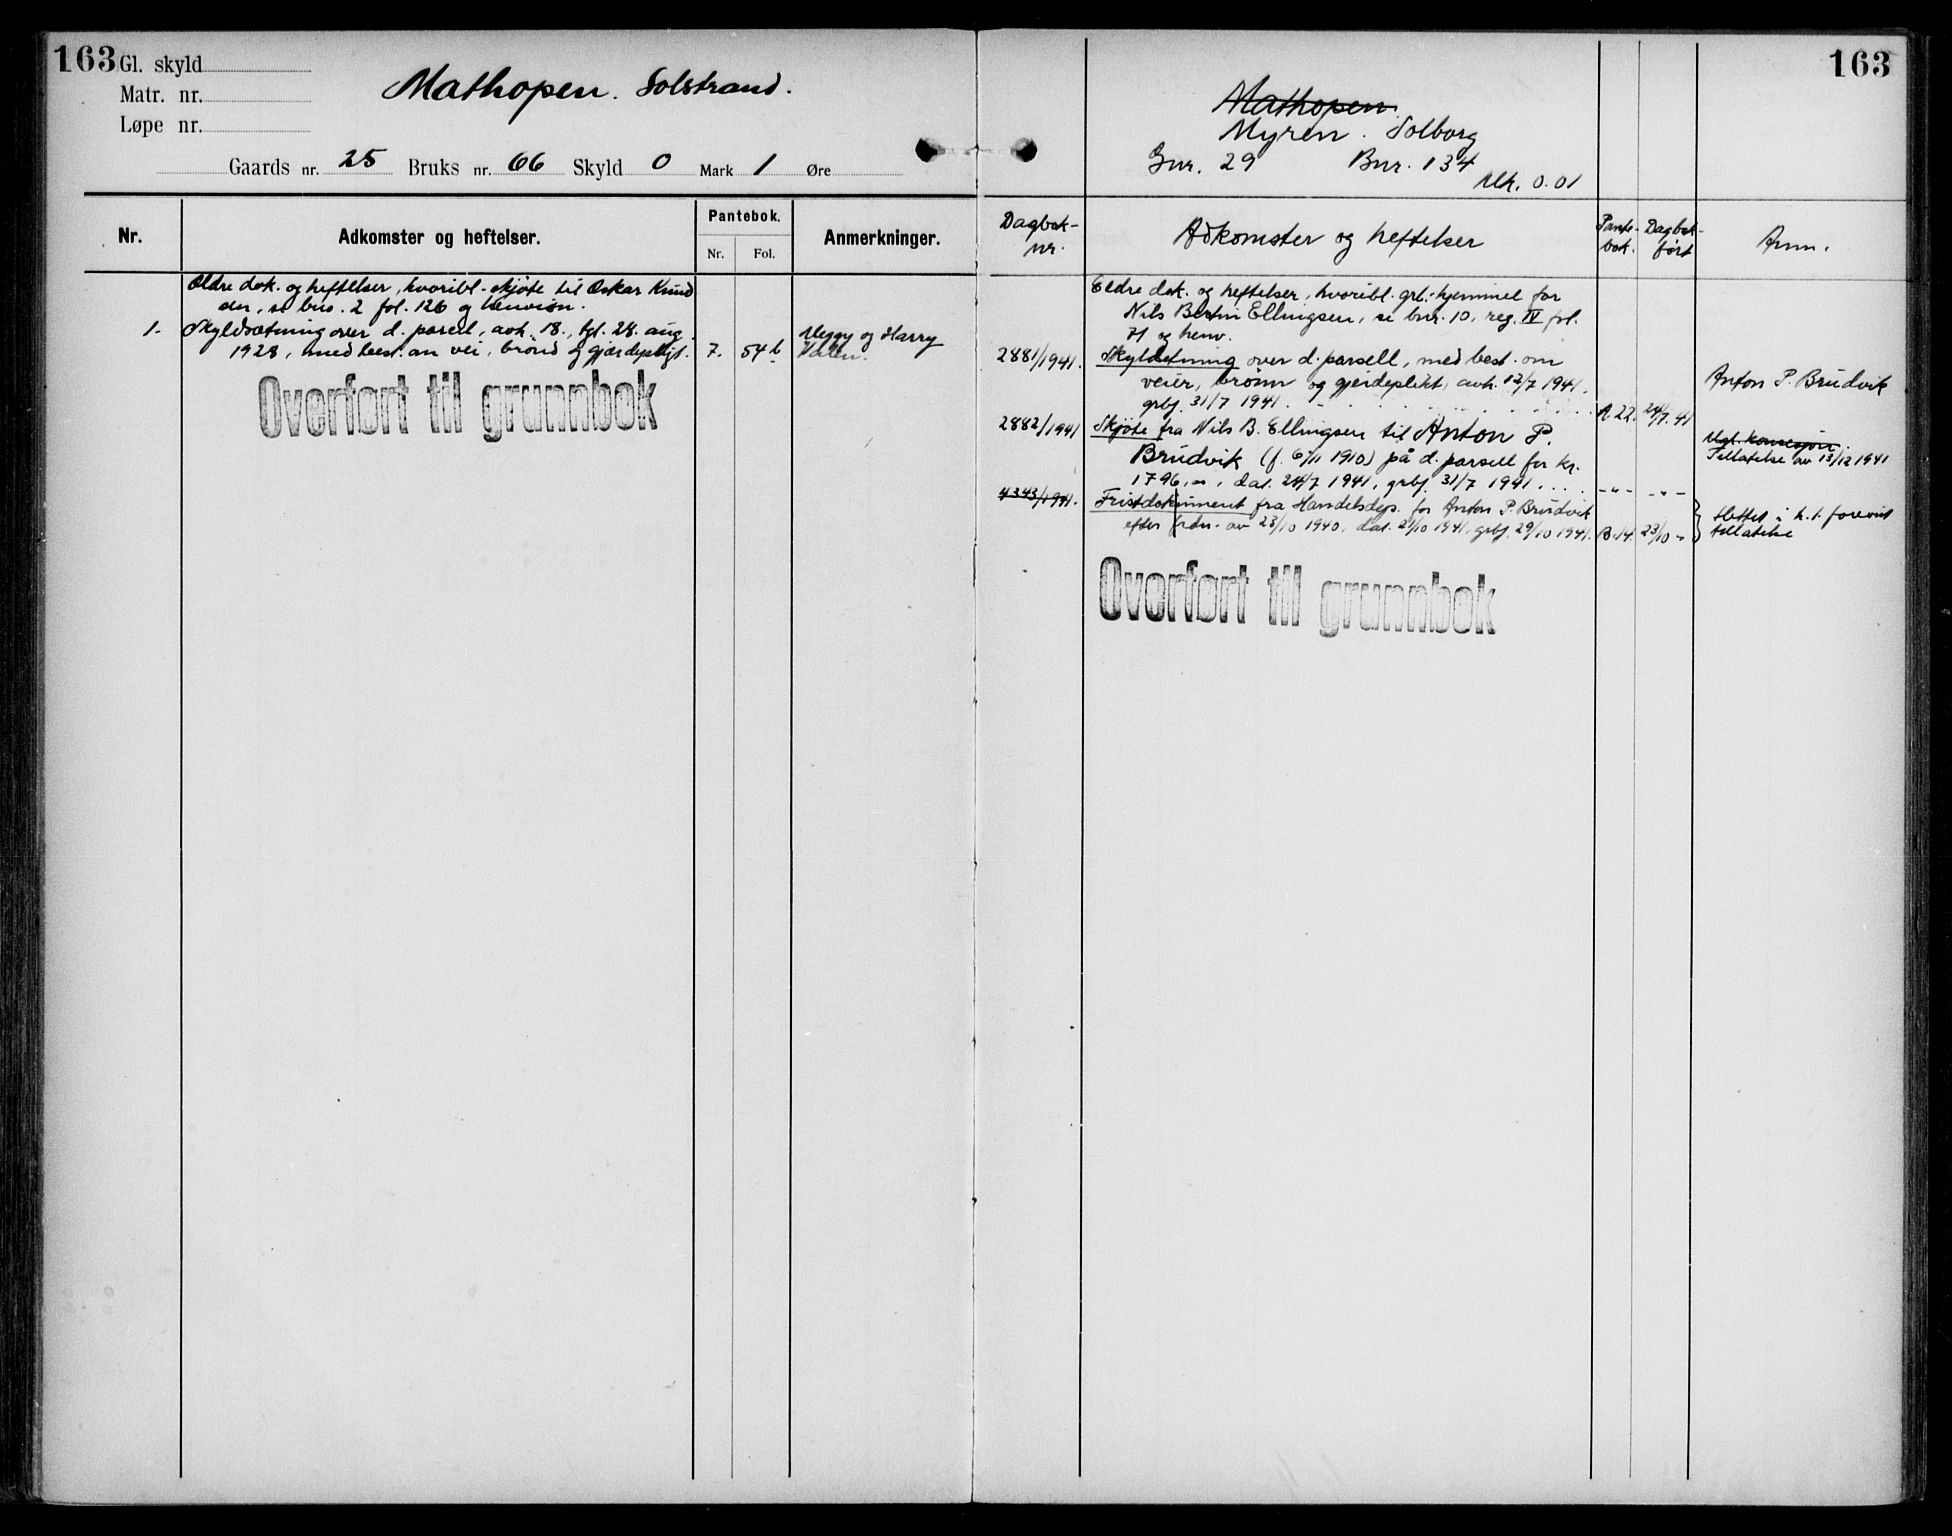 163 Gl. skyld
Matr. nr.
Løpe nr.
Mathopen. Solstrand.
Gaards nr. 25 Bruks nr. 66 Skyld 0 Mark 1 Øre
Nr. Adkomster og heftelser. Pantebok. Anmerkninger.
Nr. Fol.
Ældre dok. og heftelser, hvoribl. skjøte til Oskar Knud
sen, se bns. 2 fol. 126 og henvisn.
1. Skyldsætning over d. parcel, avh. 18., tgl. 28. aug.
1928, med best. om vei, brønd og gjærdepligt. 7. 54 b
Meggy og Harry
Overført til grunnbok
163
Mathopen.
Myren. Solborg
Gnr. 29 Bnr. 134
Mk. 0.01
Dagbok-
nr.
Adkomster og heftelser
Pante-
bok.
Dagbok-
ført
Anm.
Eldre dok. og heftelser, hvoribl. grl. hjemmel for
Nils Bertin Ellingsen, se bnr. 10, reg. IV fol.
71 og henv.
2881/1941. Skyldsetning over d. parsell, med best. om
veier, brønn og gjerdeplikt, avh. 12/7 1941.
grbf. 31/7 1941. A. 22. 24/7. 41
Anton P. Brudvik
2882/1941 Skjöte fra Nils B. Ellingsen til Anton P.
Brudvik (f. 6/11 1910) på d. parsell for kr.
1796,oo, dat. 24/7 1941, grbf. 31/7 1941. -"- -"-
Mgl. konsesjon.
Tillatelse av 13/12 1941
4343/1941. Fristdokument fra Handelsdep. for Anton P. Brudvik
efter frdn. av 23/10 1940, dat. 21/10 1941, grbf. 29/10 1941. B.14. 23/10 "
slettet i h.t. forevist
tillatelse
Overført til grunnbok